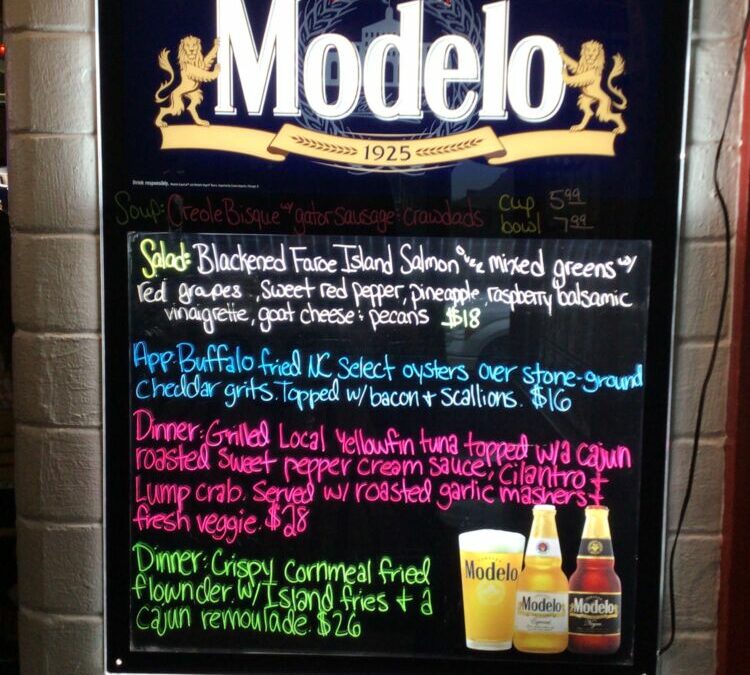 Modelo
1925
Drink responsibly.
Soup: Creole Bisque w/ gator sausage + crawdads cup 5.99
bowl 7.99
Salad: Blackened Faroe Island Salmon over mixed greens w/
red grapes, sweet red pepper, pineapple, raspberry balsamic
vinaigrette, goat cheese + pecans $18
App: Buffalo fried NC Select oysters over stone-ground
Cheddar grits. Topped w/ bacon + scallions. $16
Dinner: Grilled Local Yellowfin tuna topped w/ a cajun
roasted sweet pepper cream sauce, Cilantro +
Lump crab. Served w/ roasted garlic mashers +
fresh veggie. $28
Dinner: Crispy Cornmeal fried
flownder w/ Island fries + a
Cajun remoulade. $26
Modelo
Modelo
Especial
Modelo
Negra